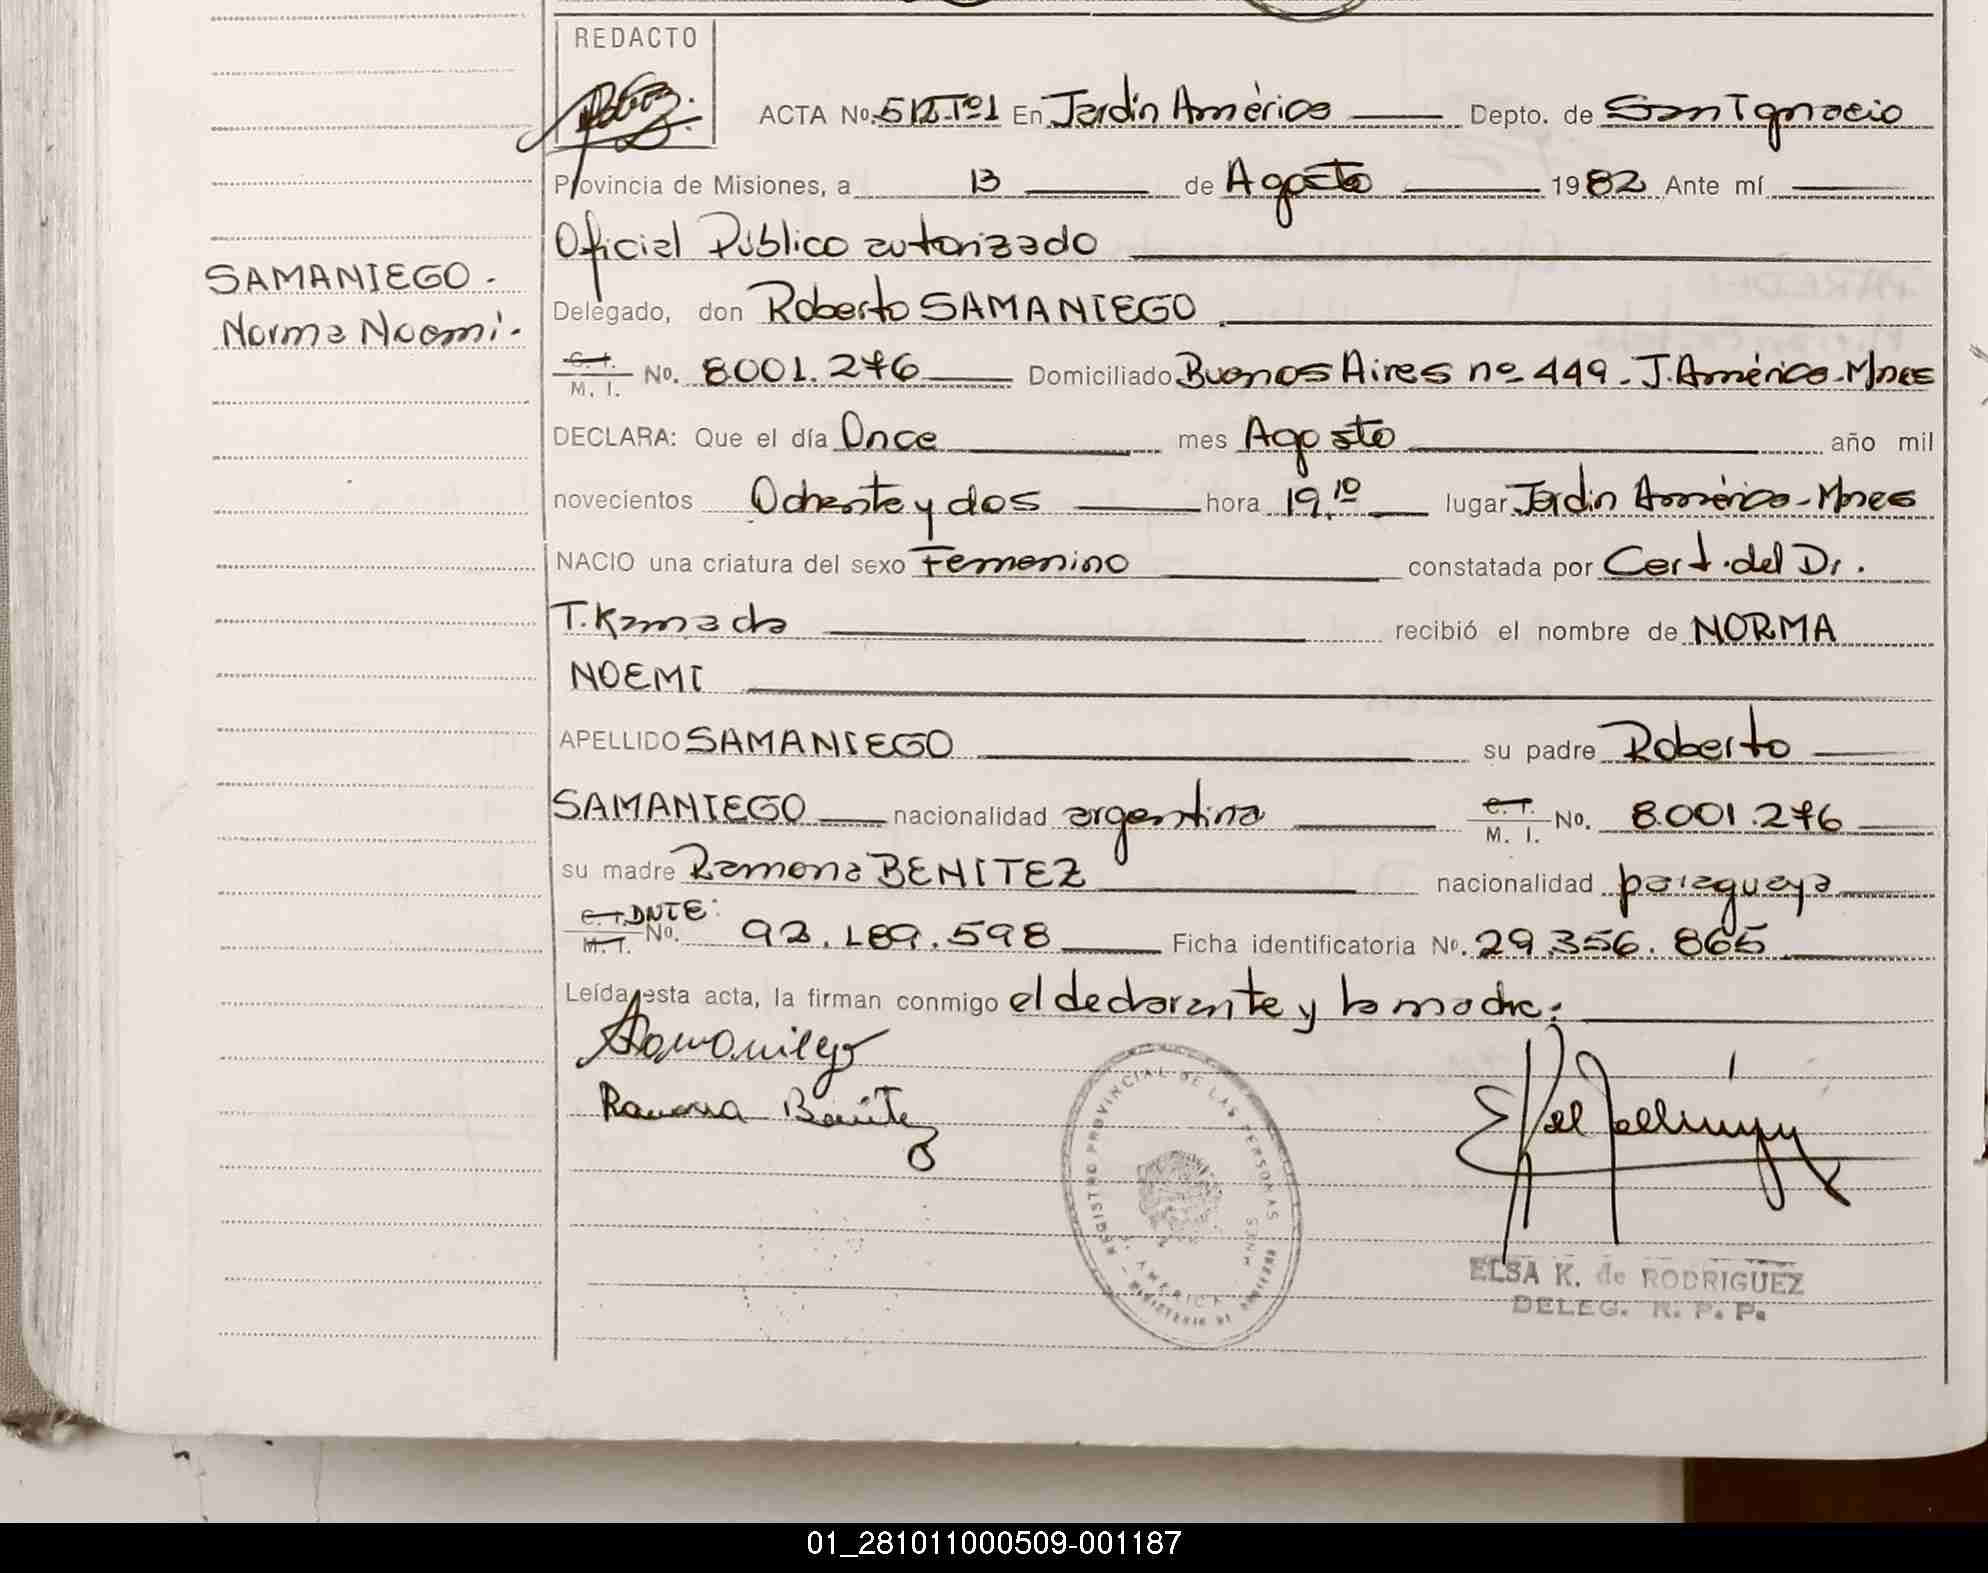 REDACTO
ACTA No. 512-Tº1 En Jardín América Depto. de San Ignacio
Provincia de Misiones, a 13 de Agosto 1982 Ante mí
Oficial Público autorizado
SAMANIEGO.
Norma Noemí.
Delegado, don Roberto SAMANIEGO
C. I.
M. I. No. 8.001.276 Domiciliado Buenos Aires nº 449. J. América-Mnes
DECLARA: Que el día Once mes Agosto año mil
novecientos Ochenta y dos hora 19,10 lugar Jardín América-Mnes
NACIO una criatura del sexo Femenino constatada por Cert. del Dr.
T. Kamada recibió el nombre de NORMA
NOEMI
APELLIDO SAMANIEGO su padre Roberto
SAMANIEGO nacionalidad argentina C. I.
M. I. No. 8.001.276
su madre Ramona BENITEZ nacionalidad paraguaya
C. I. DNIE:
M. I. No. 92.189.598 Ficha identificatoria No. 29.356.865
Leída esta acta, la firman conmigo el declarante y la madre.
Samaniego
Ramona Benitez
REGISTRO PROVINCIAL DE LAS PERSONAS
AMERICA
MNES
MINISTERIO DE
ELSA K. de RODRIGUEZ
DELEG. R. P. P.
01_281011000509-001187